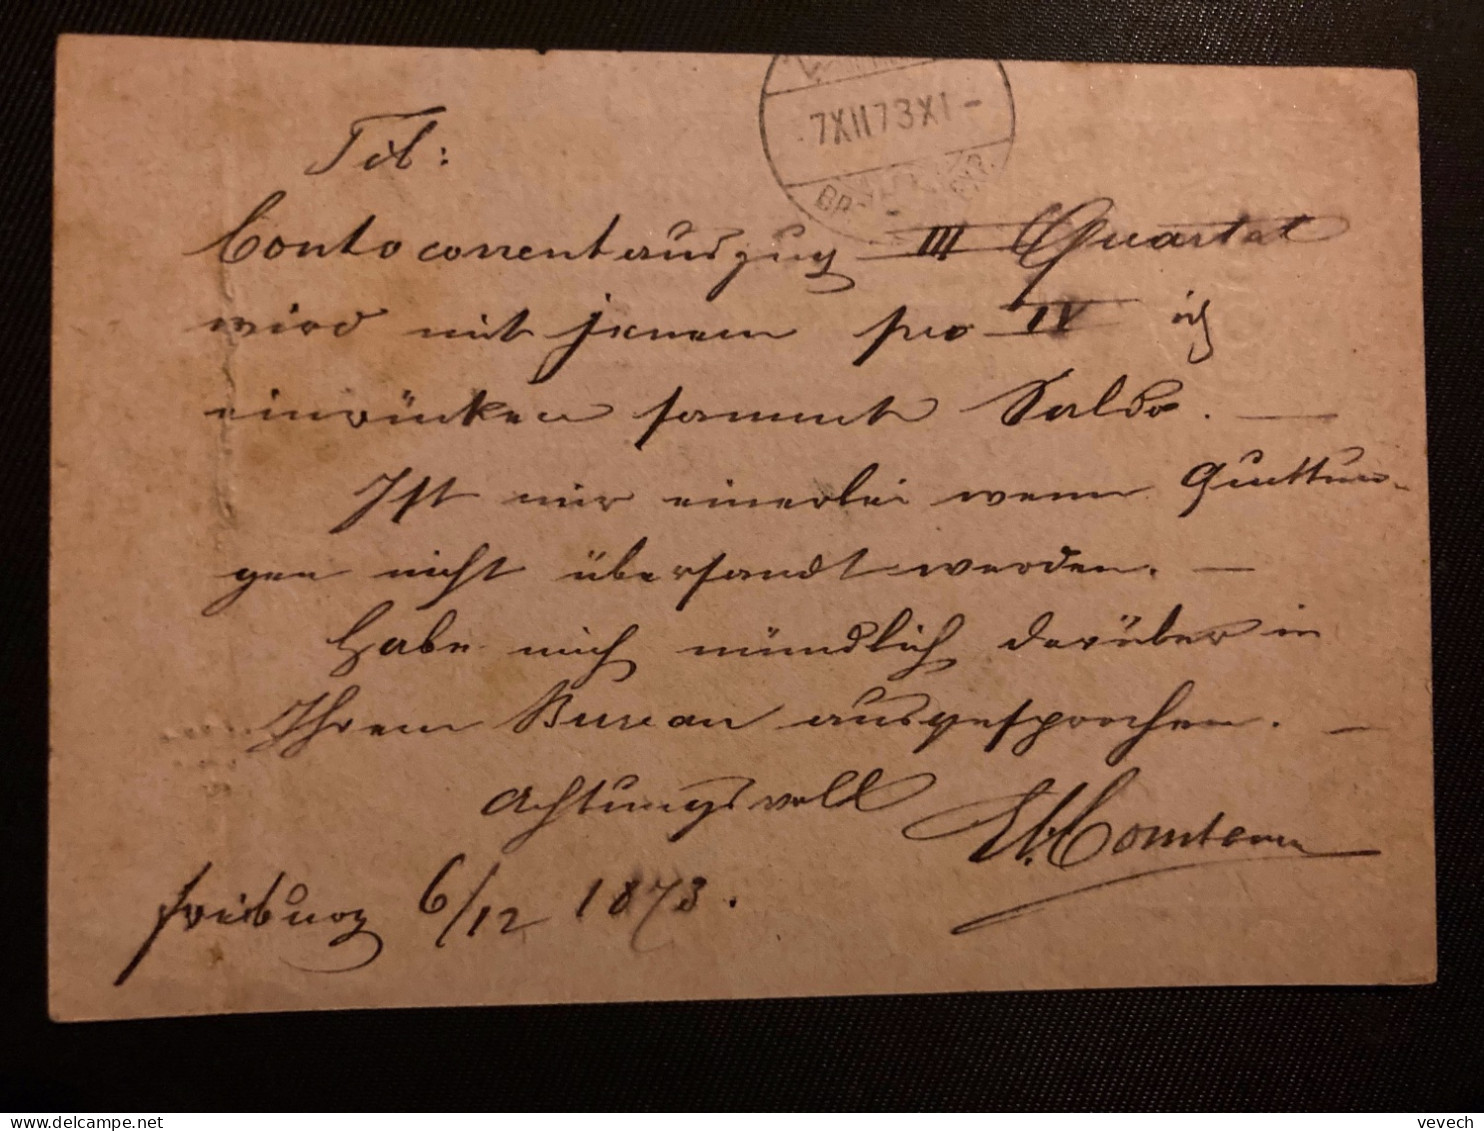 7XII73XI-
Tit:
Conto correntauszug III Quartal
wird mit jenem pro IV
einrücken sammt Saldo. —
Ist mir einerlei wenn Quittun-
gen nicht übersandt werden. —
Habe mich mündlich darüber in
Ihrem Bureau ausgesprochen. —
Achtungsvoll
Freiburg 6/12 1873.
vevech